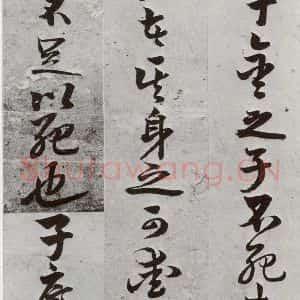 千金之子不死
其身之可愛
不足以死也子房
Shufawang.CN